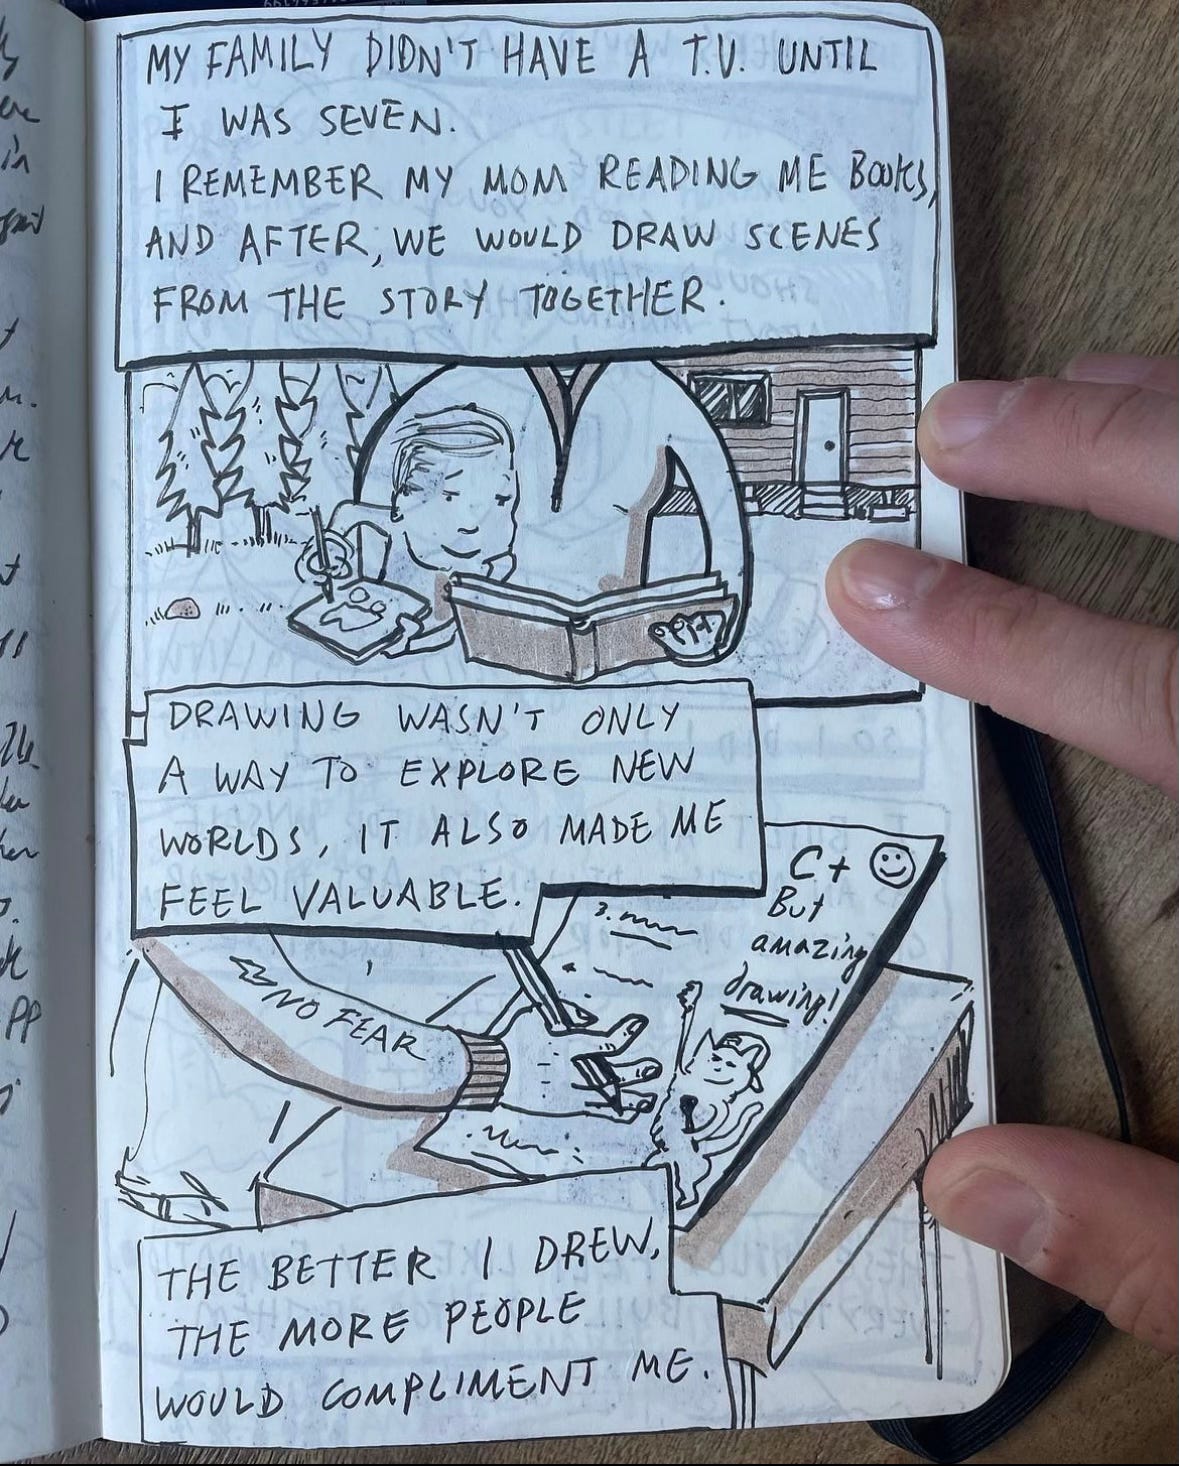 MY FAMILY DIDN'T HAVE A T.V. UNTIL
I WAS SEVEN.
I REMEMBER MY MOM READING ME BOOKS,
AND AFTER, WE WOULD DRAW SCENES
FROM THE STORY TOGETHER.
DRAWING WASN'T ONLY
A WAY TO EXPLORE NEW
WORLDS, IT ALSO MADE ME
FEEL VALUABLE.
C+ ☺
But
amazing
drawing!
3.
NO FEAR
THE BETTER I DREW,
THE MORE PEOPLE
WOULD COMPLIMENT ME.